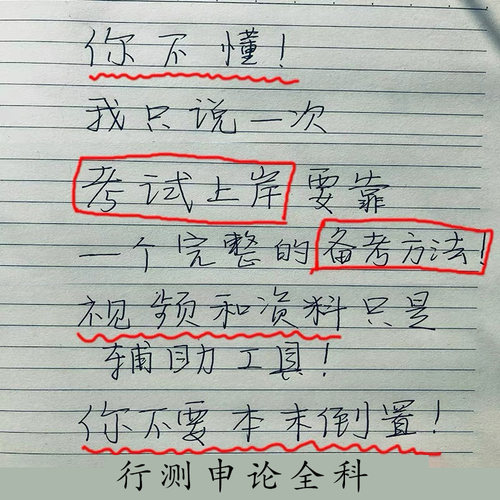 你不懂!
我只说一次
考试上岸要靠
一个完整的备考方法!
视频和资料只是
辅助工具!
你不要本末倒置!
行测申论全科